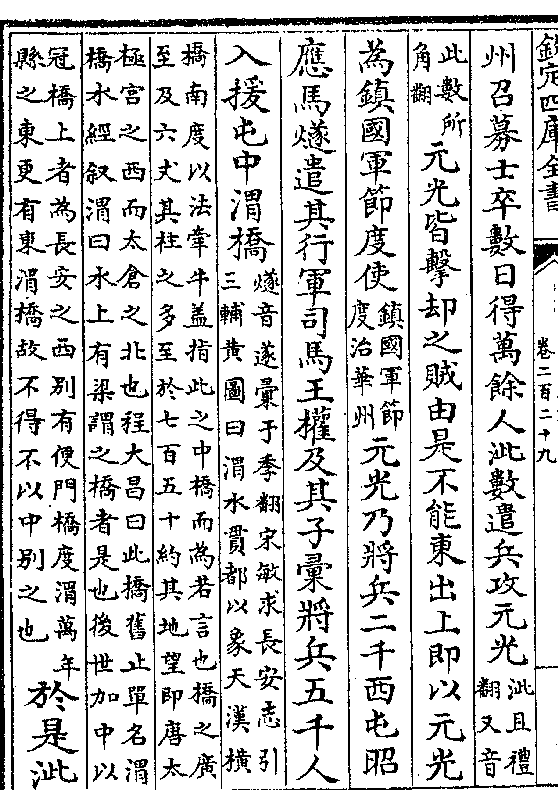 欽定四庫全書
卷二百二十九
州召募士卒數日得萬餘人泚數遣兵攻元光泚且禮
翻又音
此數所
角翻
元光皆擊却之賊由是不能東出上即以元光
為鎮國軍節度使鎮國軍節
度治華州
元光乃將兵二千西屯昭
應馬燧遣其行軍司馬王權及其子彚將兵五千人
入援屯中渭橋燧音遂彚于季翻宋敏求長安志引
三輔黄圖曰渭水貫都以象天漢横
橋南度以法牽牛盖指此之中橋而為若言也橋之廣
至及六丈其柱之多至於七百五十約其地望即唐太
極宮之西而太倉之北也程大昌曰此橋舊止單名渭
橋水經叙渭曰水上有梁謂之橋者是也後世加中以
冠橋上者為長安之西别有便門橋度渭萬年
縣之東更有東渭橋故不得不以中别之也
於是泚